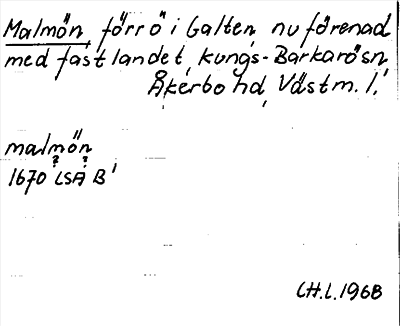 Malmön, förr ö i Galten, nu förenad
med fastlandet, Kungs-Barkarö sn,
Åkerbo hd, Västm. l.
malmön
1670 LSA B1
CH.L. 1968